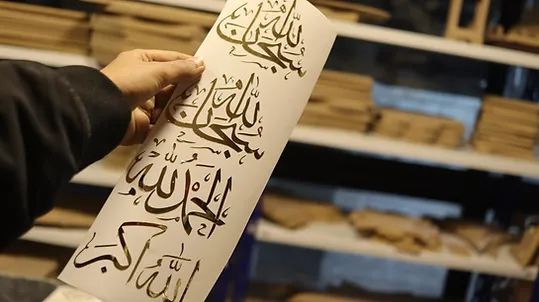 سبحان الله
سبحان الله
الحمد لله
الله أكبر